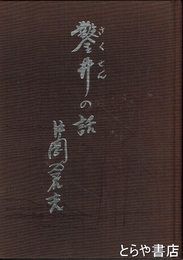 さくせん
鑿井の話
片岡
とらや書店